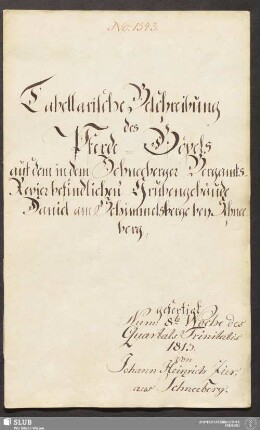 No: 1543.
Tabellarische Beschreibung
des
Pferde-Göpels
auf dem in dem Schneeberger Bergamts-
Revier befindlichen Grubengebäude
Daniel am Schimmelsberge bey Schnee-
berg,
gefertigt
Num: 8te Woche des
Quartals Trinitatis
1813.
von
Johann Heinrich
aus Schneeberg.
SLUB